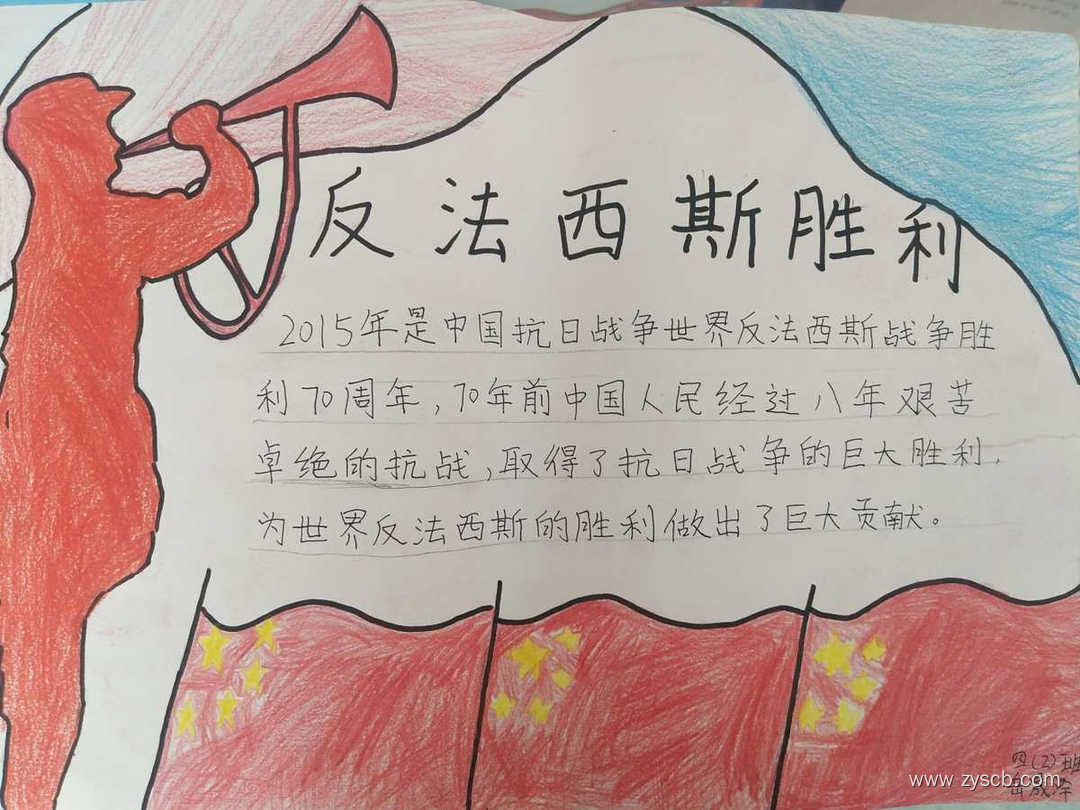 反法西斯胜利
2015年是中国抗日战争世界反法西斯战争胜
利70周年，70年前中国人民经过八年艰苦
卓绝的抗战，取得了抗日战争的巨大胜利，
为世界反法西斯的胜利做出了巨大贡献。
四(2)班
www.zyscb.com